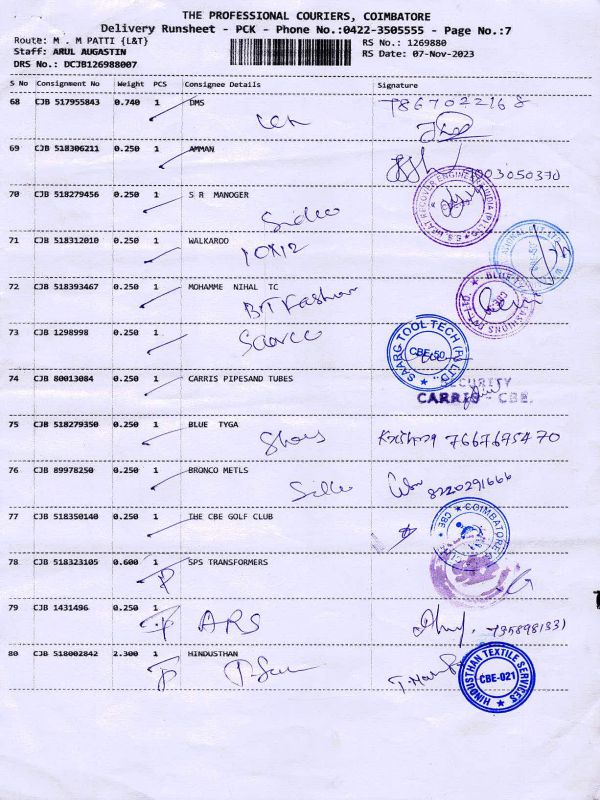 THE PROFESSIONAL COURIERS, COIMBATORE
Delivery Runsheet - PCK - Phone No.:0422-3505555 - Page No.:7
Route: M . M PATTI {L&T}
RS No.: 1269880
Staff: ARUL AUGASTIN
RS Date: 07-Nov-2023
DRS No.: DCJB126988007
S No Consignment No Weight PCS Consignee Details Signature
68 CJB 517955843 0.740 1 DMS
7867022168
69 CJB 518306211 0.250 1 AMMAN
003050370
70 CJB 518279456 0.250 1 S R MANOGER
71 CJB 518312010 0.250 1 WALKAROO
72 CJB 518393467 0.250 1 MOHAMME NIHAL TC
BT Fashion
73 CJB 1298998 0.250 1
SAARG TOOL TECH (P) LTD.
CBE-50
74 CJB 80013084 0.250 1 CARRIS PIPESAND TUBES
SECURITY
CARRIS - CBE.
75 CJB 518279350 0.250 1 BLUE TYGA
Krishna 7667695470
76 CJB 89978250 0.250 1 BRONCO METLS
8220291666
77 CJB 518350140 0.250 1 THE CBE GOLF CLUB
COIMBATORE
CBE
78 CJB 518323105 0.600 1 SPS TRANSFORMERS
79 CJB 1431496 0.250 1
ARS
7358981331
80 CJB 518002842 2.300 1 HINDUSTHAN
HINDUSTHAN TEXTILE SERVICES
CBE-021